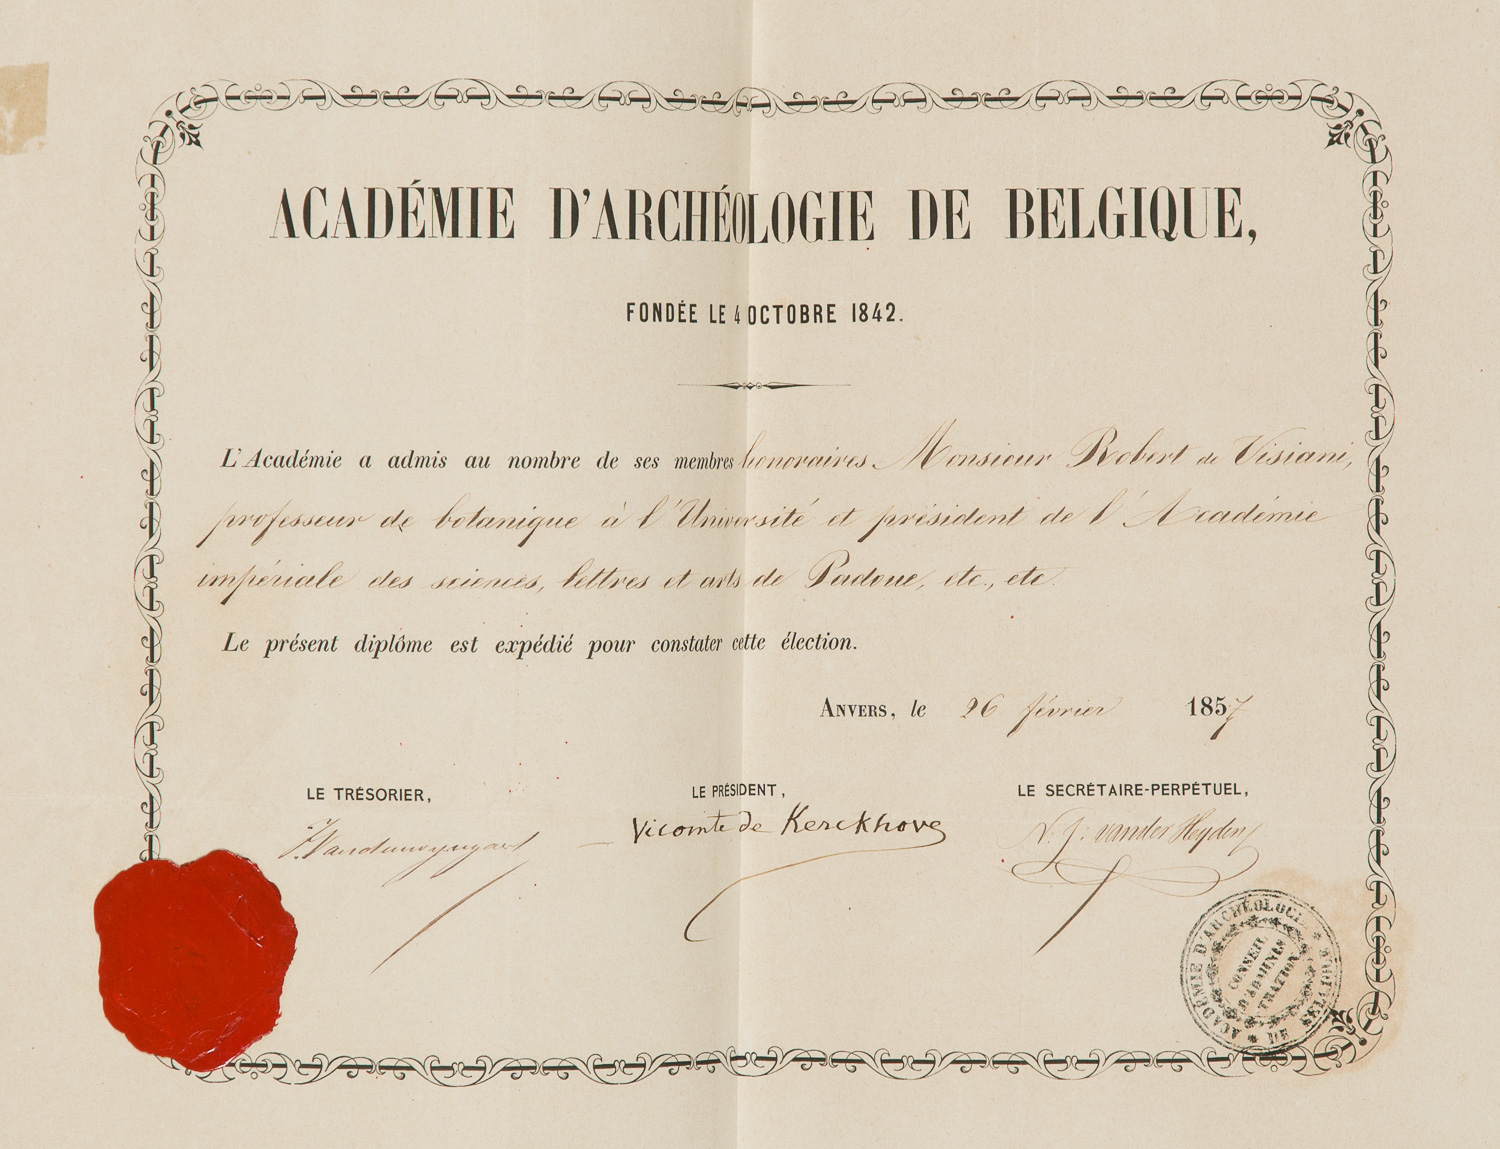 ACADÉMIE D'ARCHÉOLOGIE DE BELGIQUE,
FONDÉE LE 4 OCTOBRE 1842.
L'Académie a admis au nombre de ses membres honoraires Monsieur Robert de Visiani,
professeur de botanique à l'Université et président de l'Académie
impériale des sciences, lettres et arts de Padoue, etc., etc.
Le présent diplôme est expédié pour constater cette élection.
ANVERS, le 26 février 1857
LE TRÉSORIER, LE PRÉSIDENT, LE SECRÉTAIRE-PERPÉTUEL,
Vicomte de Kerckhove N. J. vander Heyden
ACADÉMIE D'ARCHÉOLOGIE DE BELGIQUE
CONSEIL
D'ADMINIS
TRATION